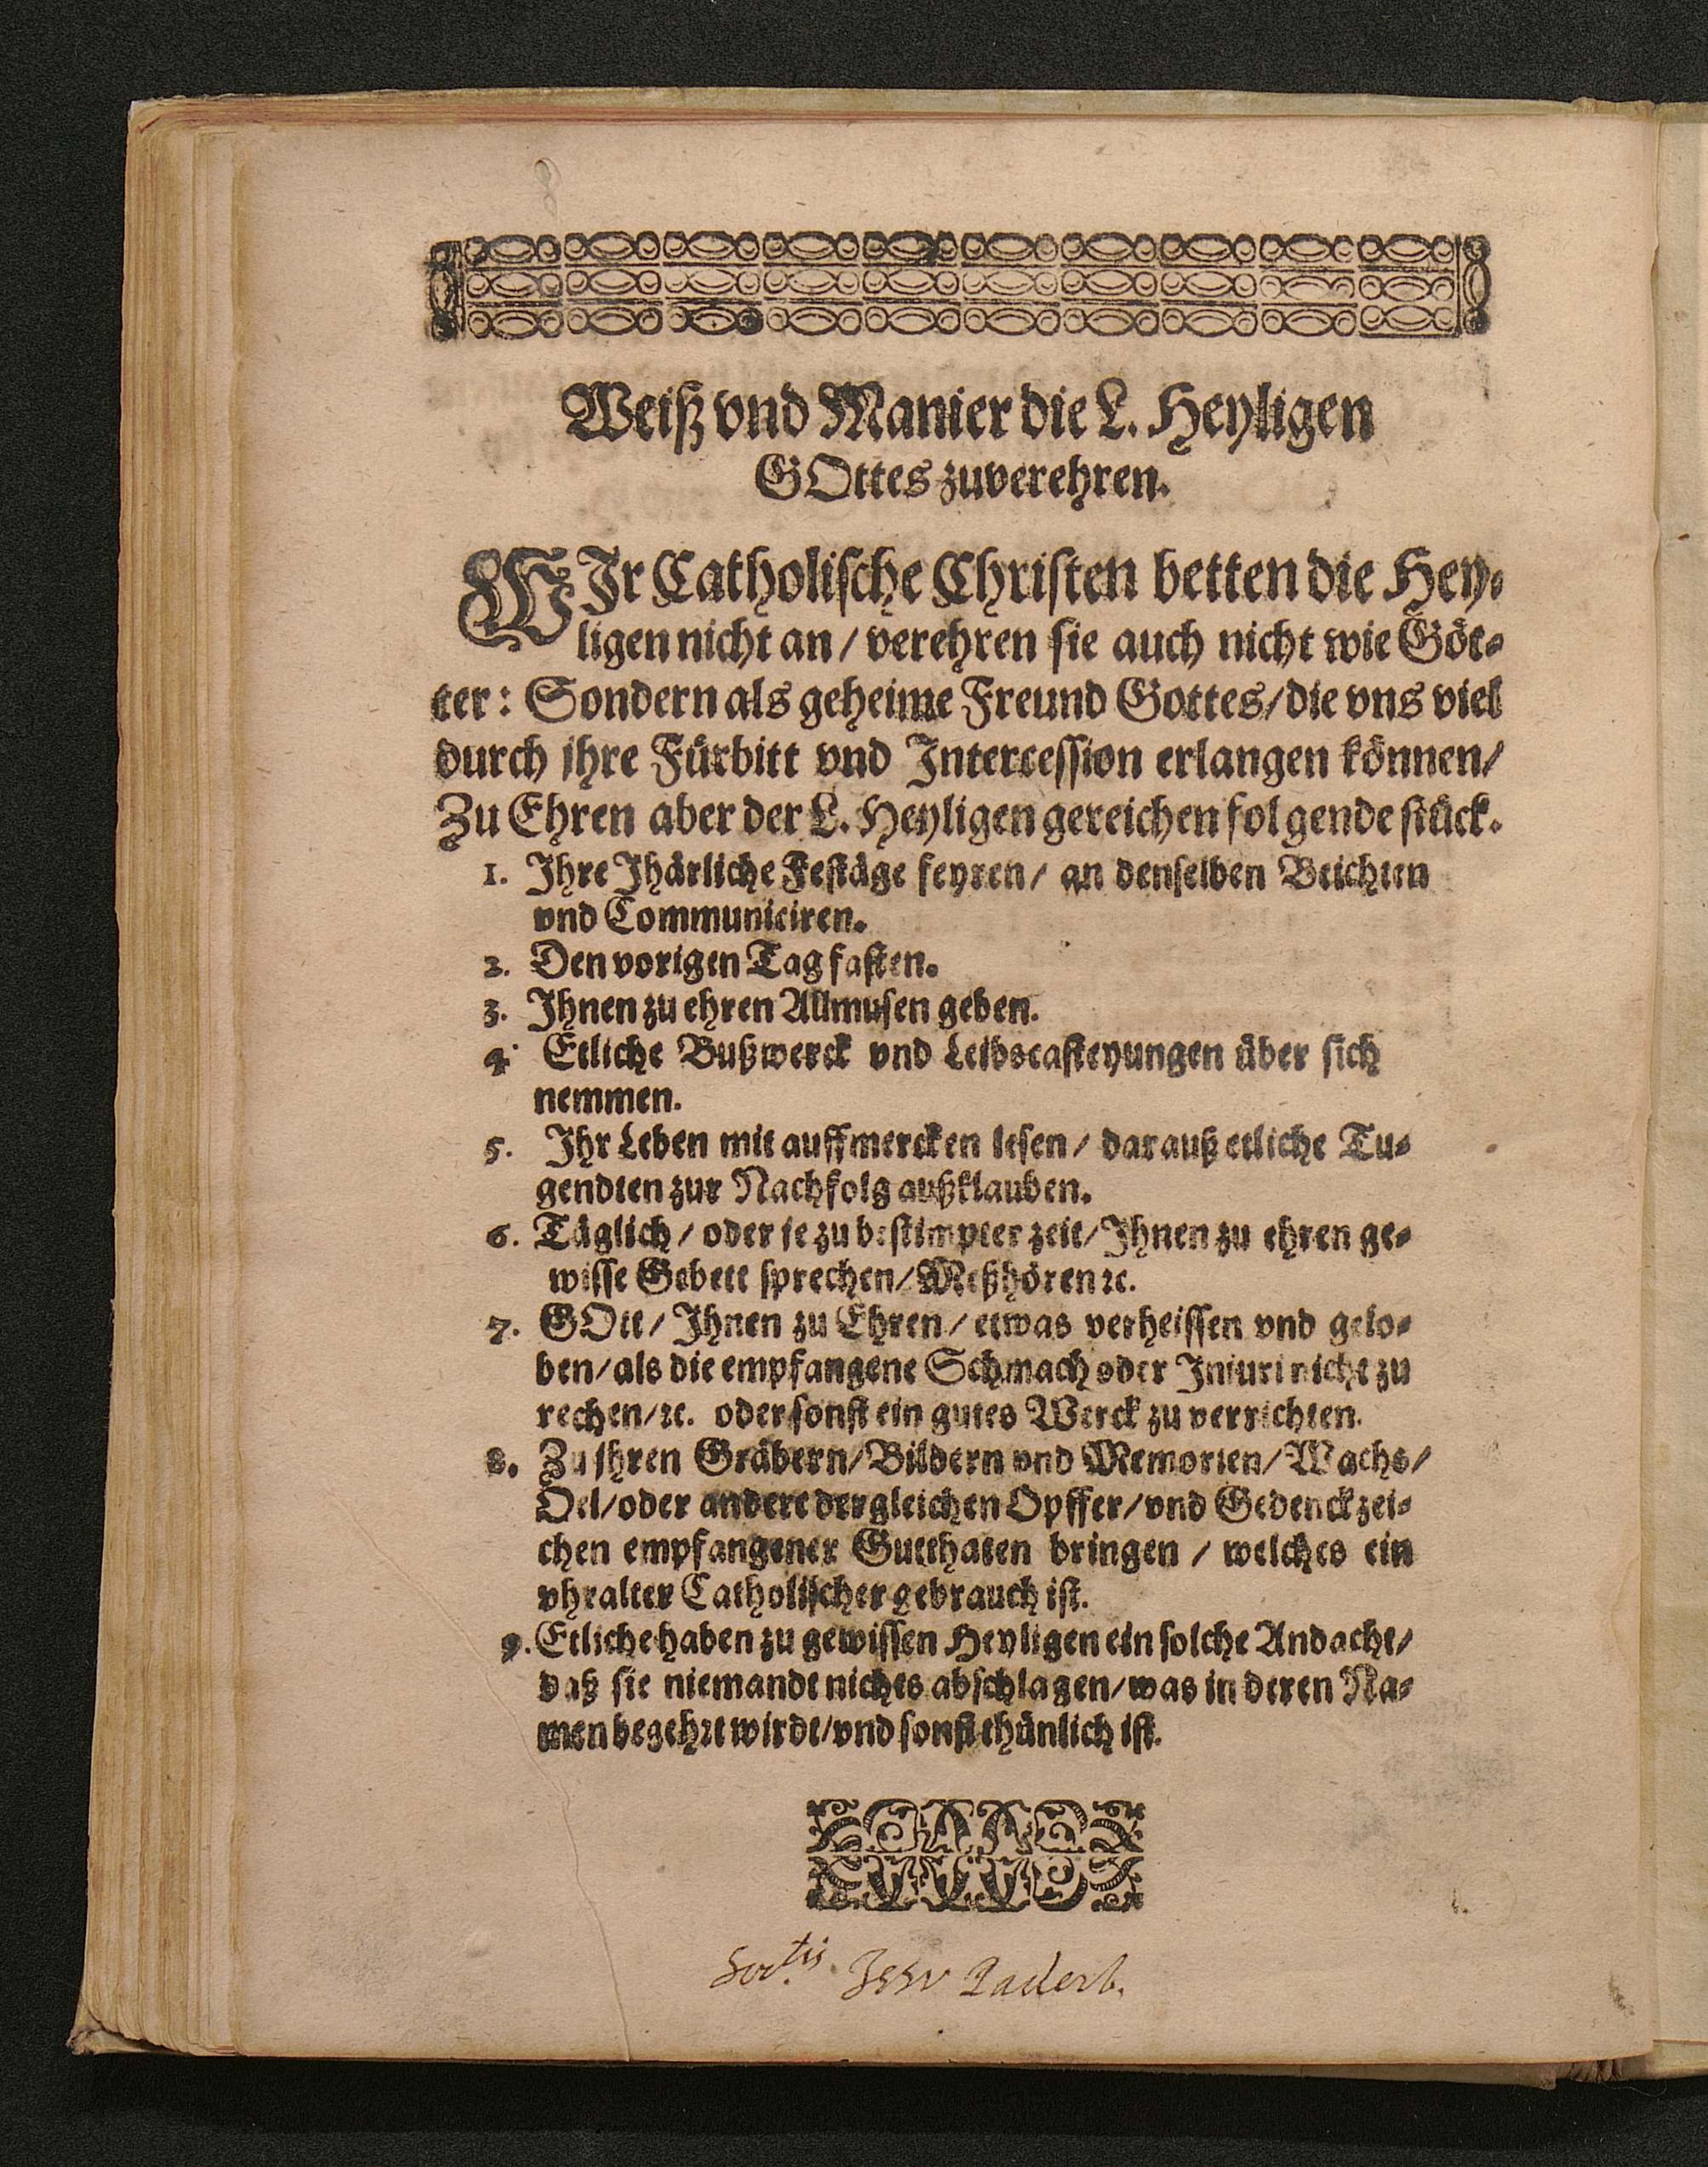 Weiß vnd Manier die L. Heyligen
GOttes zuverehren.
WJr Catholische Christen betten die Hey-
ligen nicht an / verehren sie auch nicht wie Göt-
ter: Sondern als geheime Freund Gottes/die vns viel
durch jhre Fürbitt vnd Intercession erlangen können/
Zu Ehren aber der L. Heyligen gereichen folgende stück.
1. Ihre Jhärliche Festäge feyren/ an denselben Beichten
vnd Communiciren.
2. Den vorigen Tag fasten.
3. Ihnen zu ehren Allmusen geben.
4. Etliche Bußwerck vnd Leibscasteyungen über sich
nemmen.
5. Ihr Leben mit auffmercken lesen / darauß etliche Tu-
gendten zur Nachfolg außklauben.
6. Täglich / oder je zu bestimpter zeit/ Ihnen zu ehren ge-
wisse Gebett sprechen/Meßhören ꝛc.
7. GOtt/ Ihnen zu Ehren/ etwas verheissen vnd gelo-
ben/als die empfangene Schmach oder Iniuri nicht zu
rechen/ꝛc. oder sonst ein gutes Werck zu verrichten.
8. Zu jhren Gräbern/Bildern vnd Memorien/ Wachs/
Oel/oder andere dergleichen Opffer/vnd Gedenckzei-
chen empfangener Gutthaten bringen / welches ein
vhralter Catholischer gebrauch ist.
9. Etliche haben zu gewissen Heyligen ein solche Andacht/
daß sie niemandt nichts abschlagen/was in deren Na-
men begehrt wirdt/vnd sonst thünlich ist.
Soc.tis Jesv Paderb.